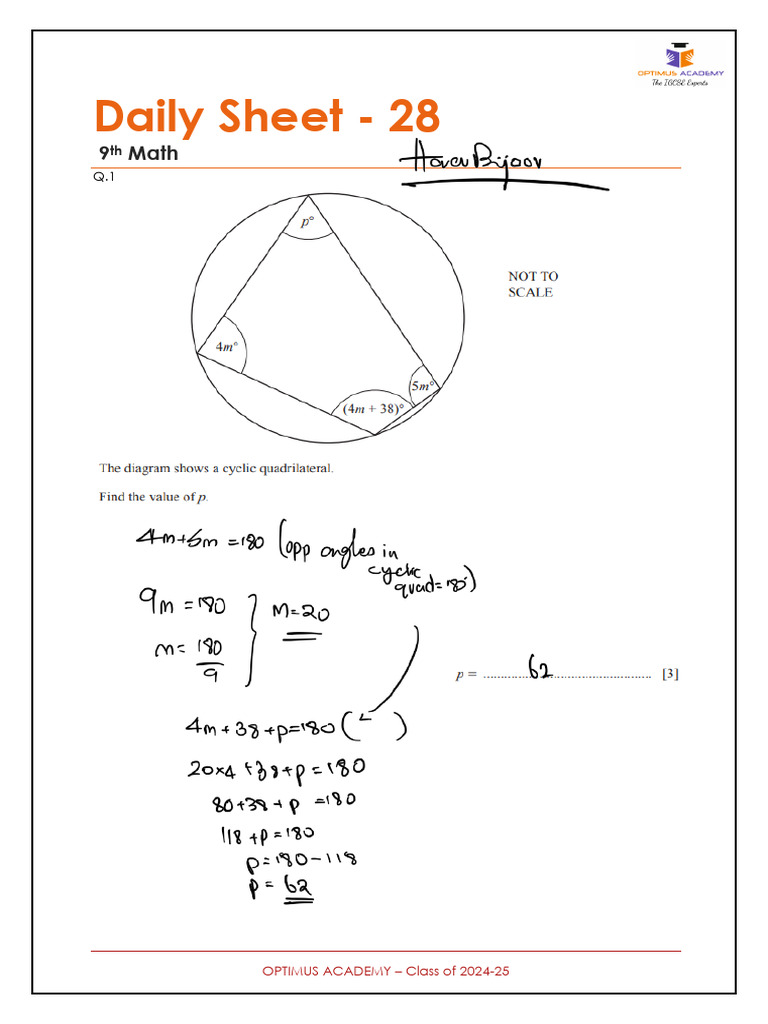 OPTIMUS ACADEMY
The IGCSE Experts
Daily Sheet - 28
9th Math
Q.1
p°
NOT TO
SCALE
4m°
5m°
(4m + 38)°
The diagram shows a cyclic quadrilateral.
Find the value of p.
4m+5m = 180 (opp angles in
cyclic
quad=180°)
9m = 180
M=20
m= 180
9
p = 62 [3]
4m+38+p=180 ( )
20×4 +38+p=180
80+38+p =180
118+p=180
p=180-118
p= 62
OPTIMUS ACADEMY – Class of 2024-25